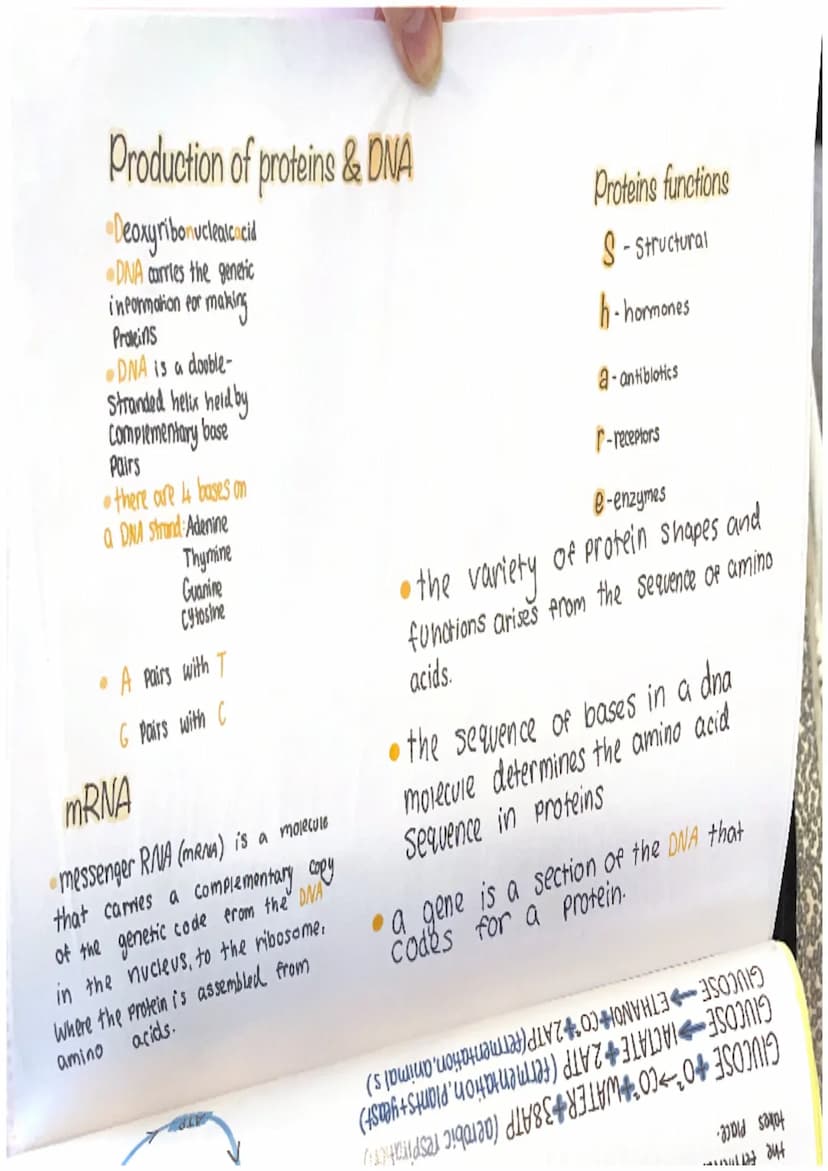 Production of proteins & DNA
•Deoxyribonuclealcacid
•DNA carries the genetic
information for making
Proteins
•DNA is a double-
Stranded helix held by
complementary base
Pairs
•there are 4 bases on
a DNA strand: Adenine
Thymine
Guanine
Cytosine
• A Pairs with T
G Pairs with C
mRNA
•messenger RNA (mRNA) is a molecule
that carries a complementary copy
of the genetic code from the DNA
in the nucleus, to the ribosome.
Where the protein is assembled from
amino acids.
Proteins functions
S - Structural
h - hormones
a - antibiotics
r - receptors
e - enzymes
• the variety of protein shapes and
functions arises from the sequence of amino
acids.
• the sequence of bases in a dna
molecule determines the amino acid
sequence in proteins
• a gene is a section of the DNA that
codes for a protein.
takes place.
GLUCOSE + O² → CO² + WATER + 38ATP (aerobic respiration)
GLUCOSE → LACTATE + 2ATP (fermentation, plants + yeast)
GLUCOSE → ETHANOL + CO² + 2ATP (fermentation, animals)
ATP